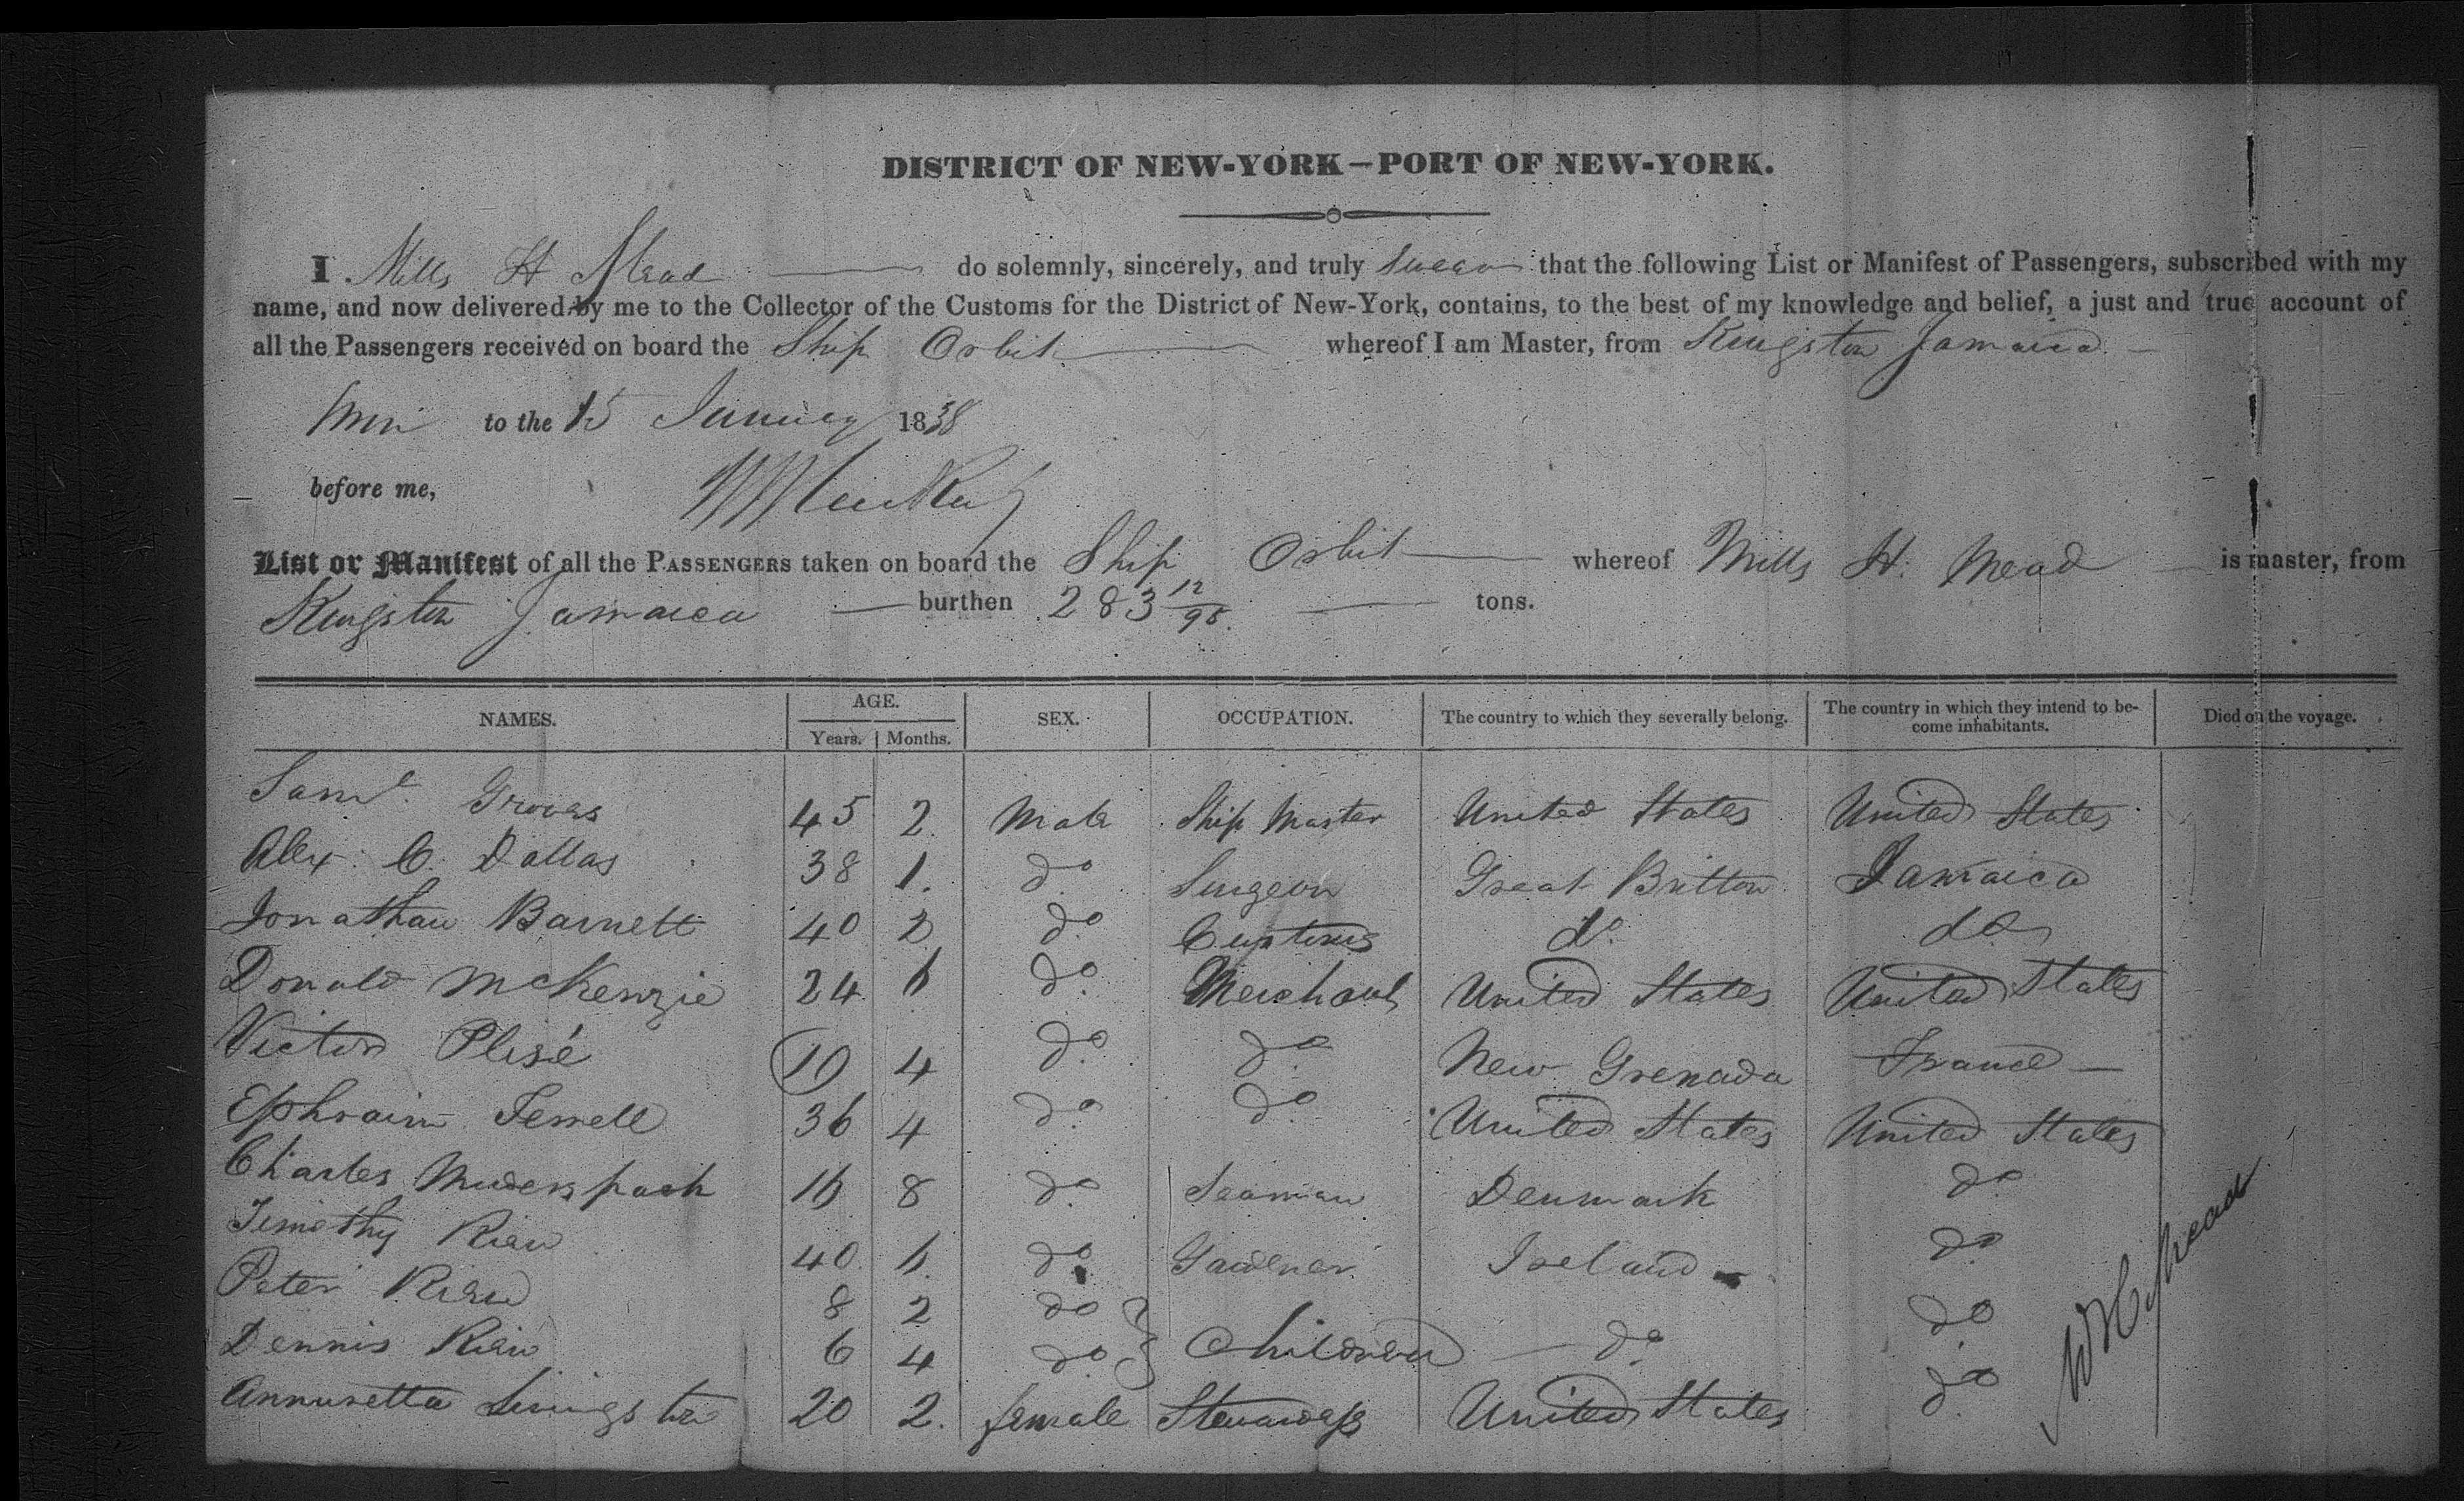 DISTRICT OF NEW-YORK—PORT OF NEW-YORK.
I Mills H Mead do solemnly, sincerely, and truly swear that the following List or Manifest of Passengers, subscribed with my
name, and now delivered by me to the Collector of the Customs for the District of New-York, contains, to the best of my knowledge and belief, a just and true account of
all the Passengers received on board the Ship Orbit whereof I am Master, from Kingston Jamaica
to the 15 January 1838
before me,
List or Manifest of all the PASSENGERS taken on board the Ship Orbit whereof Mills H. Mead is master, from
Kingston Jamaica burthen 283 12/95 tons.
NAMES. AGE. Years. Months. SEX. OCCUPATION. The country to which they severally belong. The country in which they intend to become inhabitants. Died on the voyage.
Saml. Groves 45 2. Male Ship Master United States United States
Alex. C. Dallas 38 1. do Surgeon Great Britton Jamaica
Jonathan Barnett 40 2 do Customs do do
Donald McKenzie 24 6 do Merchant United States United States
Victor Plisé 19 4 do do New Grenada France
Ephraim Terrell 36 4 do do United States United States
Charles 16 8 do Seaman Denmark do
Timothy Rian 40 6. do Gardener Ireland do
Peter Rian 8 2 do Children do do
Dennis Rian 6 4 do
Annuretta Livingston 20 2. female Stewardess United States do
Mead